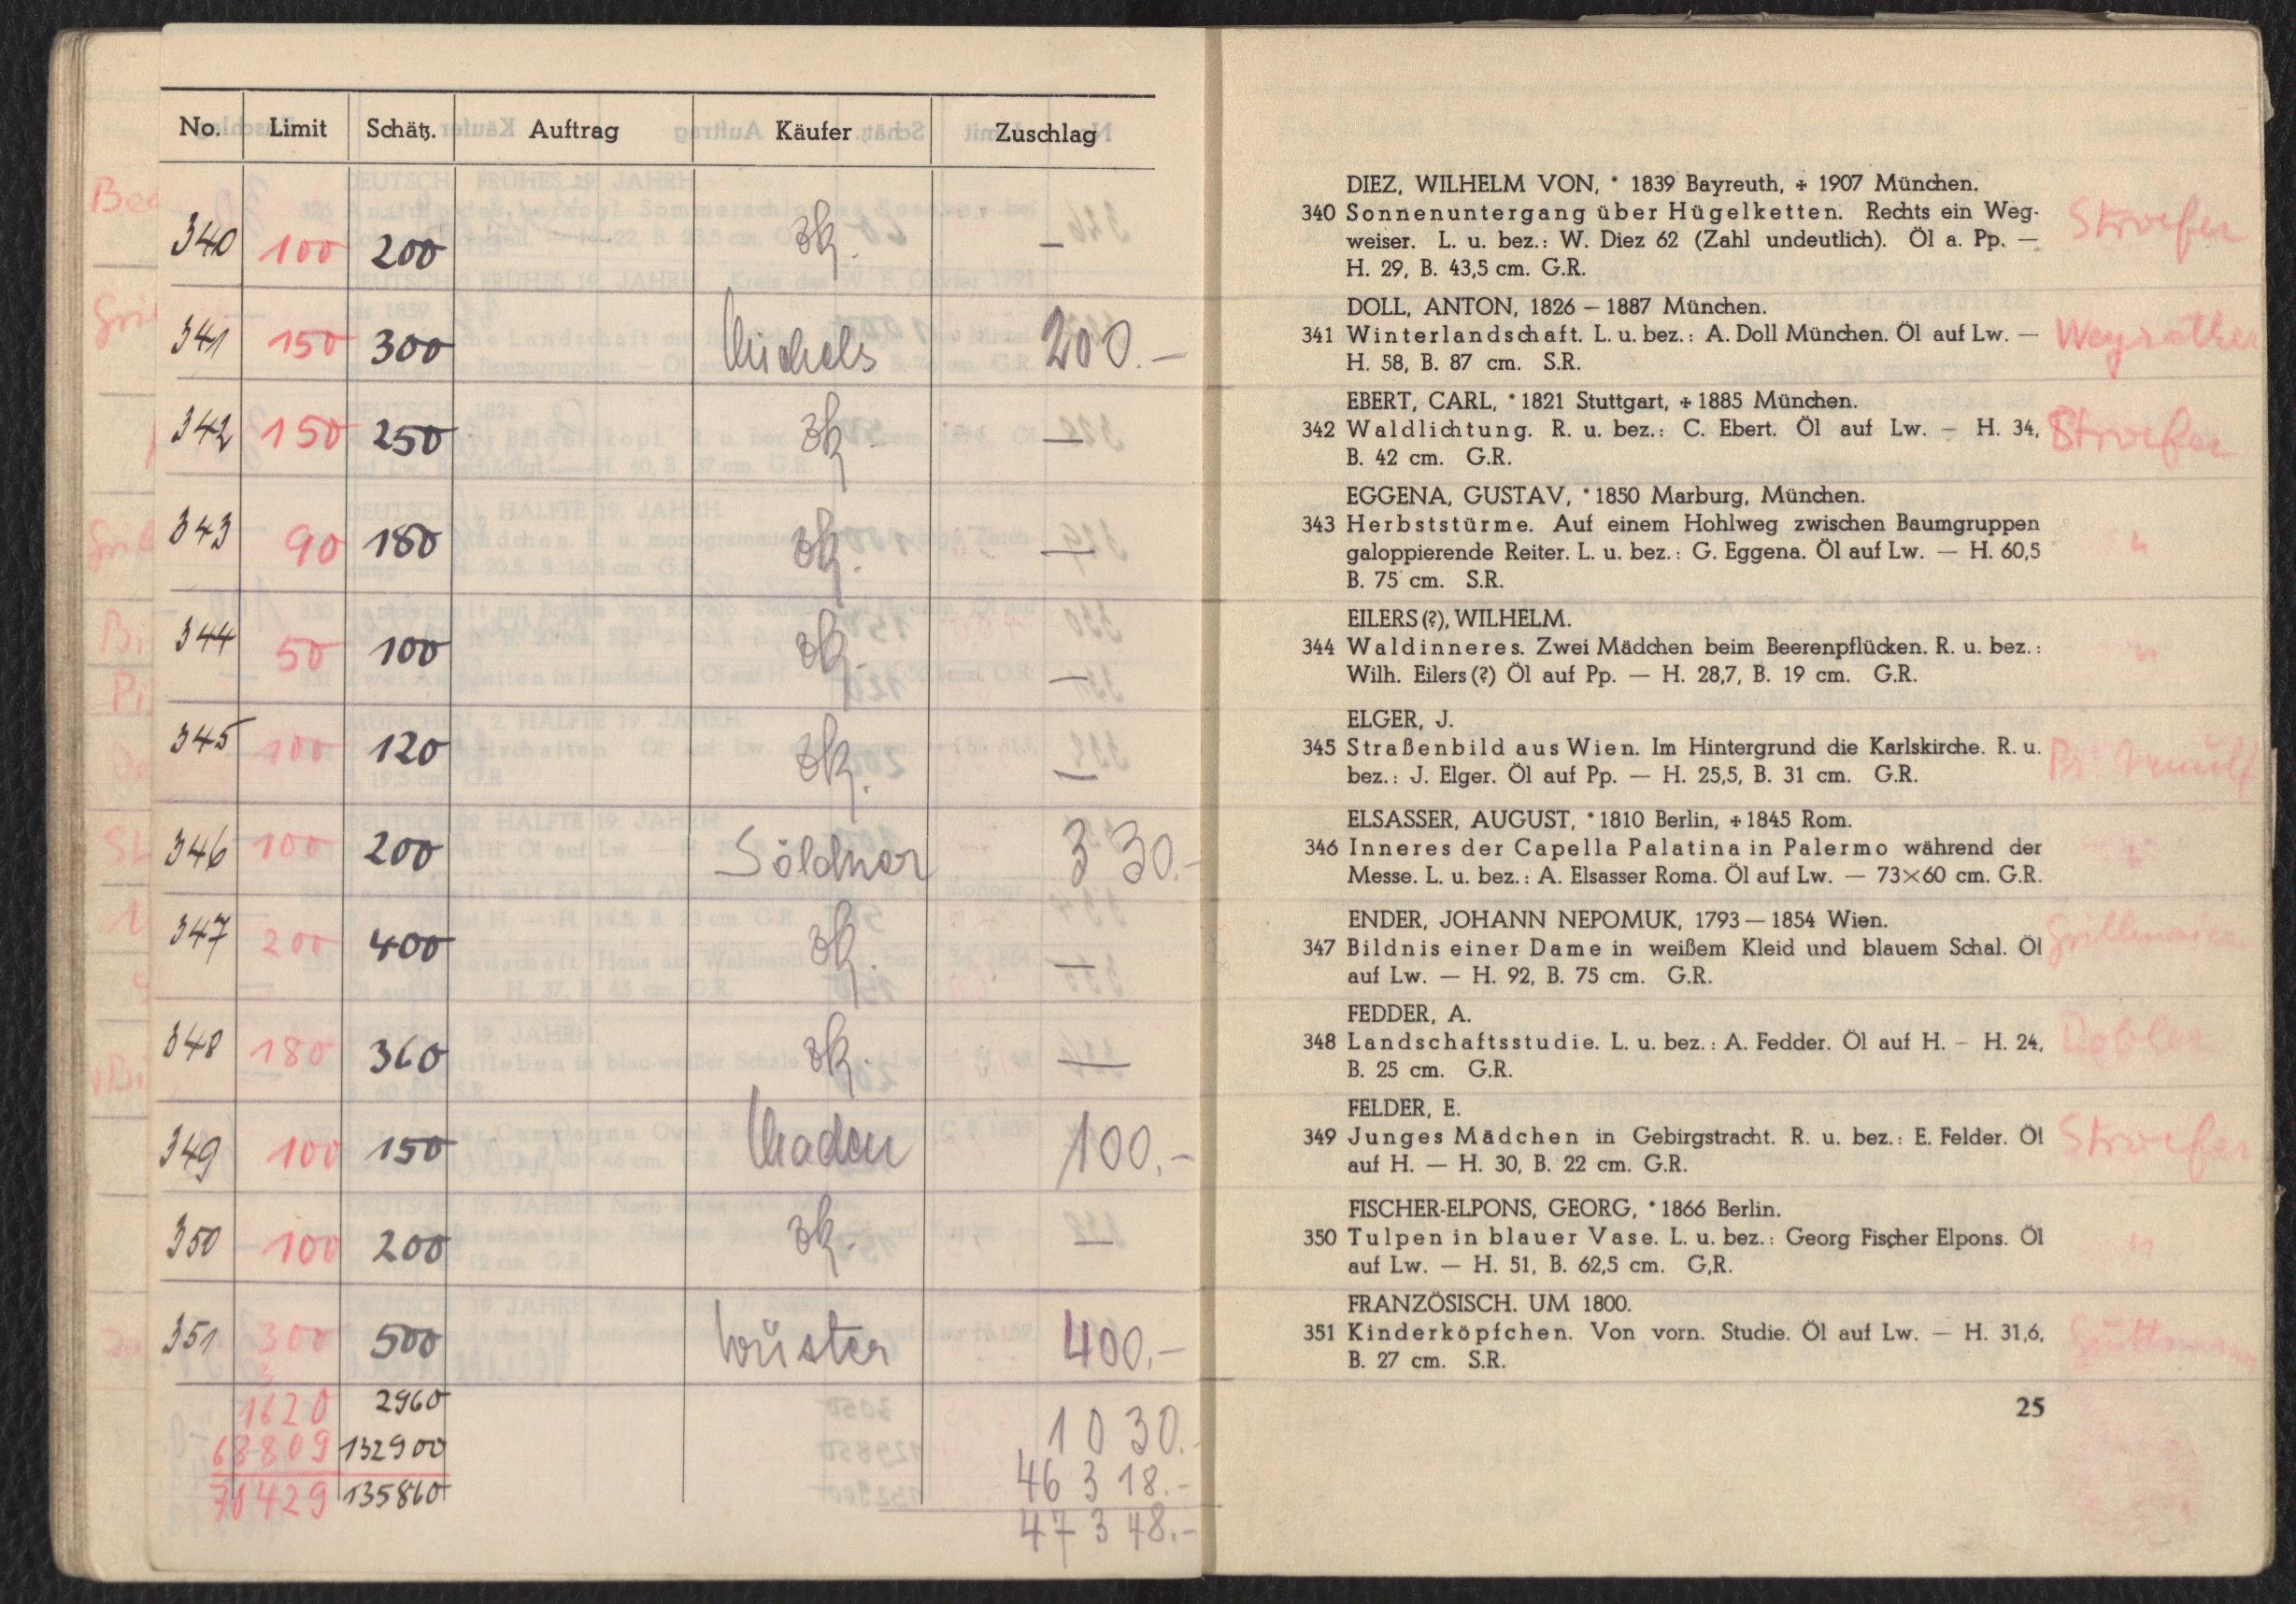 No. Limit Schätz. Auftrag Käufer Zuschlag
340 100 200 zk. —
341 150 300 Michels 200.—
342 150 250 zk. —
343 90 180 zk. —
344 50 100 zk. —
345 100 120 zk. —
346 100 200 Söldner 330.-
347 200 400 zk. —
348 180 360 zk. —
349 100 150 Maden 100.-
350 100 200 zk. —
351 300 500 Wüster 400.-
1620 2960 1030.-
68809 132900 46318.-
70429 135860 47348.-
DIEZ, WILHELM VON, * 1839 Bayreuth, + 1907 München.
340 Sonnenuntergang über Hügelketten. Rechts ein Weg- Stroefer
weiser. L. u. bez.: W. Diez 62 (Zahl undeutlich). Öl a. Pp. —
H. 29, B. 43,5 cm. G.R.
DOLL, ANTON, 1826 – 1887 München.
341 Winterlandschaft. L. u. bez.: A. Doll München. Öl auf Lw. — Weyrather
H. 58, B. 87 cm. S.R.
EBERT, CARL, * 1821 Stuttgart, + 1885 München.
342 Waldlichtung. R. u. bez.: C. Ebert. Öl auf Lw. — H. 34, Stroefer
B. 42 cm. G.R.
EGGENA, GUSTAV, * 1850 Marburg, München.
343 Herbststürme. Auf einem Hohlweg zwischen Baumgruppen
galoppierende Reiter. L. u. bez.: G. Eggena. Öl auf Lw. — H. 60,5 "
B. 75 cm. S.R.
EILERS (?), WILHELM.
344 Waldinneres. Zwei Mädchen beim Beerenpflücken. R. u. bez.: "
Wilh. Eilers (?) Öl auf Pp. — H. 28,7, B. 19 cm. G.R.
ELGER, J.
345 Straßenbild aus Wien. Im Hintergrund die Karlskirche. R. u.
bez.: J. Elger. Öl auf Pp. — H. 25,5, B. 31 cm. G.R.
ELSASSER, AUGUST, * 1810 Berlin, + 1845 Rom.
346 Inneres der Capella Palatina in Palermo während der "
Messe. L. u. bez.: A. Elsasser Roma. Öl auf Lw. — 73×60 cm. G.R.
ENDER, JOHANN NEPOMUK, 1793 — 1854 Wien.
347 Bildnis einer Dame in weißem Kleid und blauem Schal. Öl
auf Lw. — H. 92, B. 75 cm. G.R.
FEDDER, A.
348 Landschaftsstudie. L. u. bez.: A. Fedder. Öl auf H. – H. 24, Dobler
B. 25 cm. G.R.
FELDER, E.
349 Junges Mädchen in Gebirgstracht. R. u. bez.: E. Felder. Öl Stroefer
auf H. — H. 30, B. 22 cm. G.R.
FISCHER-ELPONS, GEORG, * 1866 Berlin.
350 Tulpen in blauer Vase. L. u. bez.: Georg Fischer Elpons. Öl "
auf Lw. — H. 51, B. 62,5 cm. G,R.
FRANZÖSISCH. UM 1800.
351 Kinderköpfchen. Von vorn. Studie. Öl auf Lw. — H. 31,6,
B. 27 cm. S.R.
25